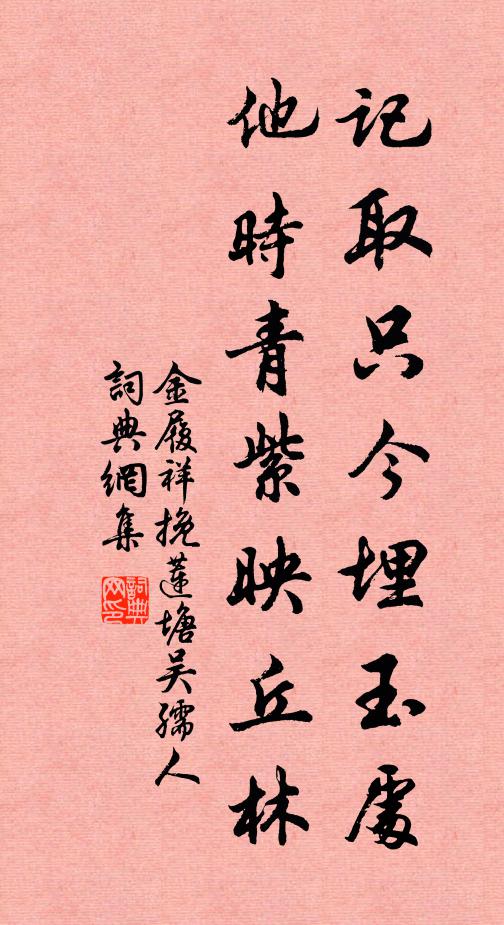 記取只今埋玉處
他時青紫映丘林
金履祥挽蓮塘吳孺人
詞典網集
詞典網印